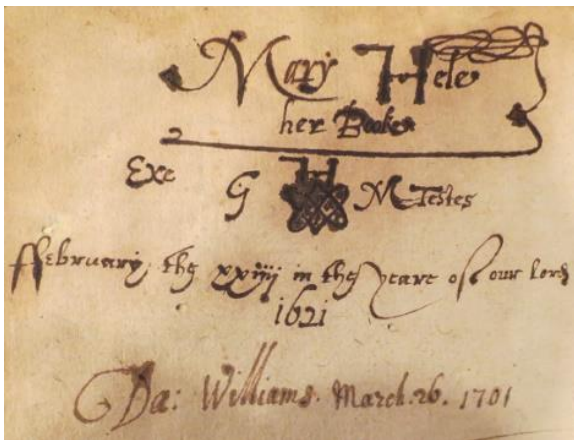 Mary Hele
her Booke
Exe G H M Testes
ffebruary the xxiiii in the yeare of our lord
1621
Da: Williams. March. 26. 1701